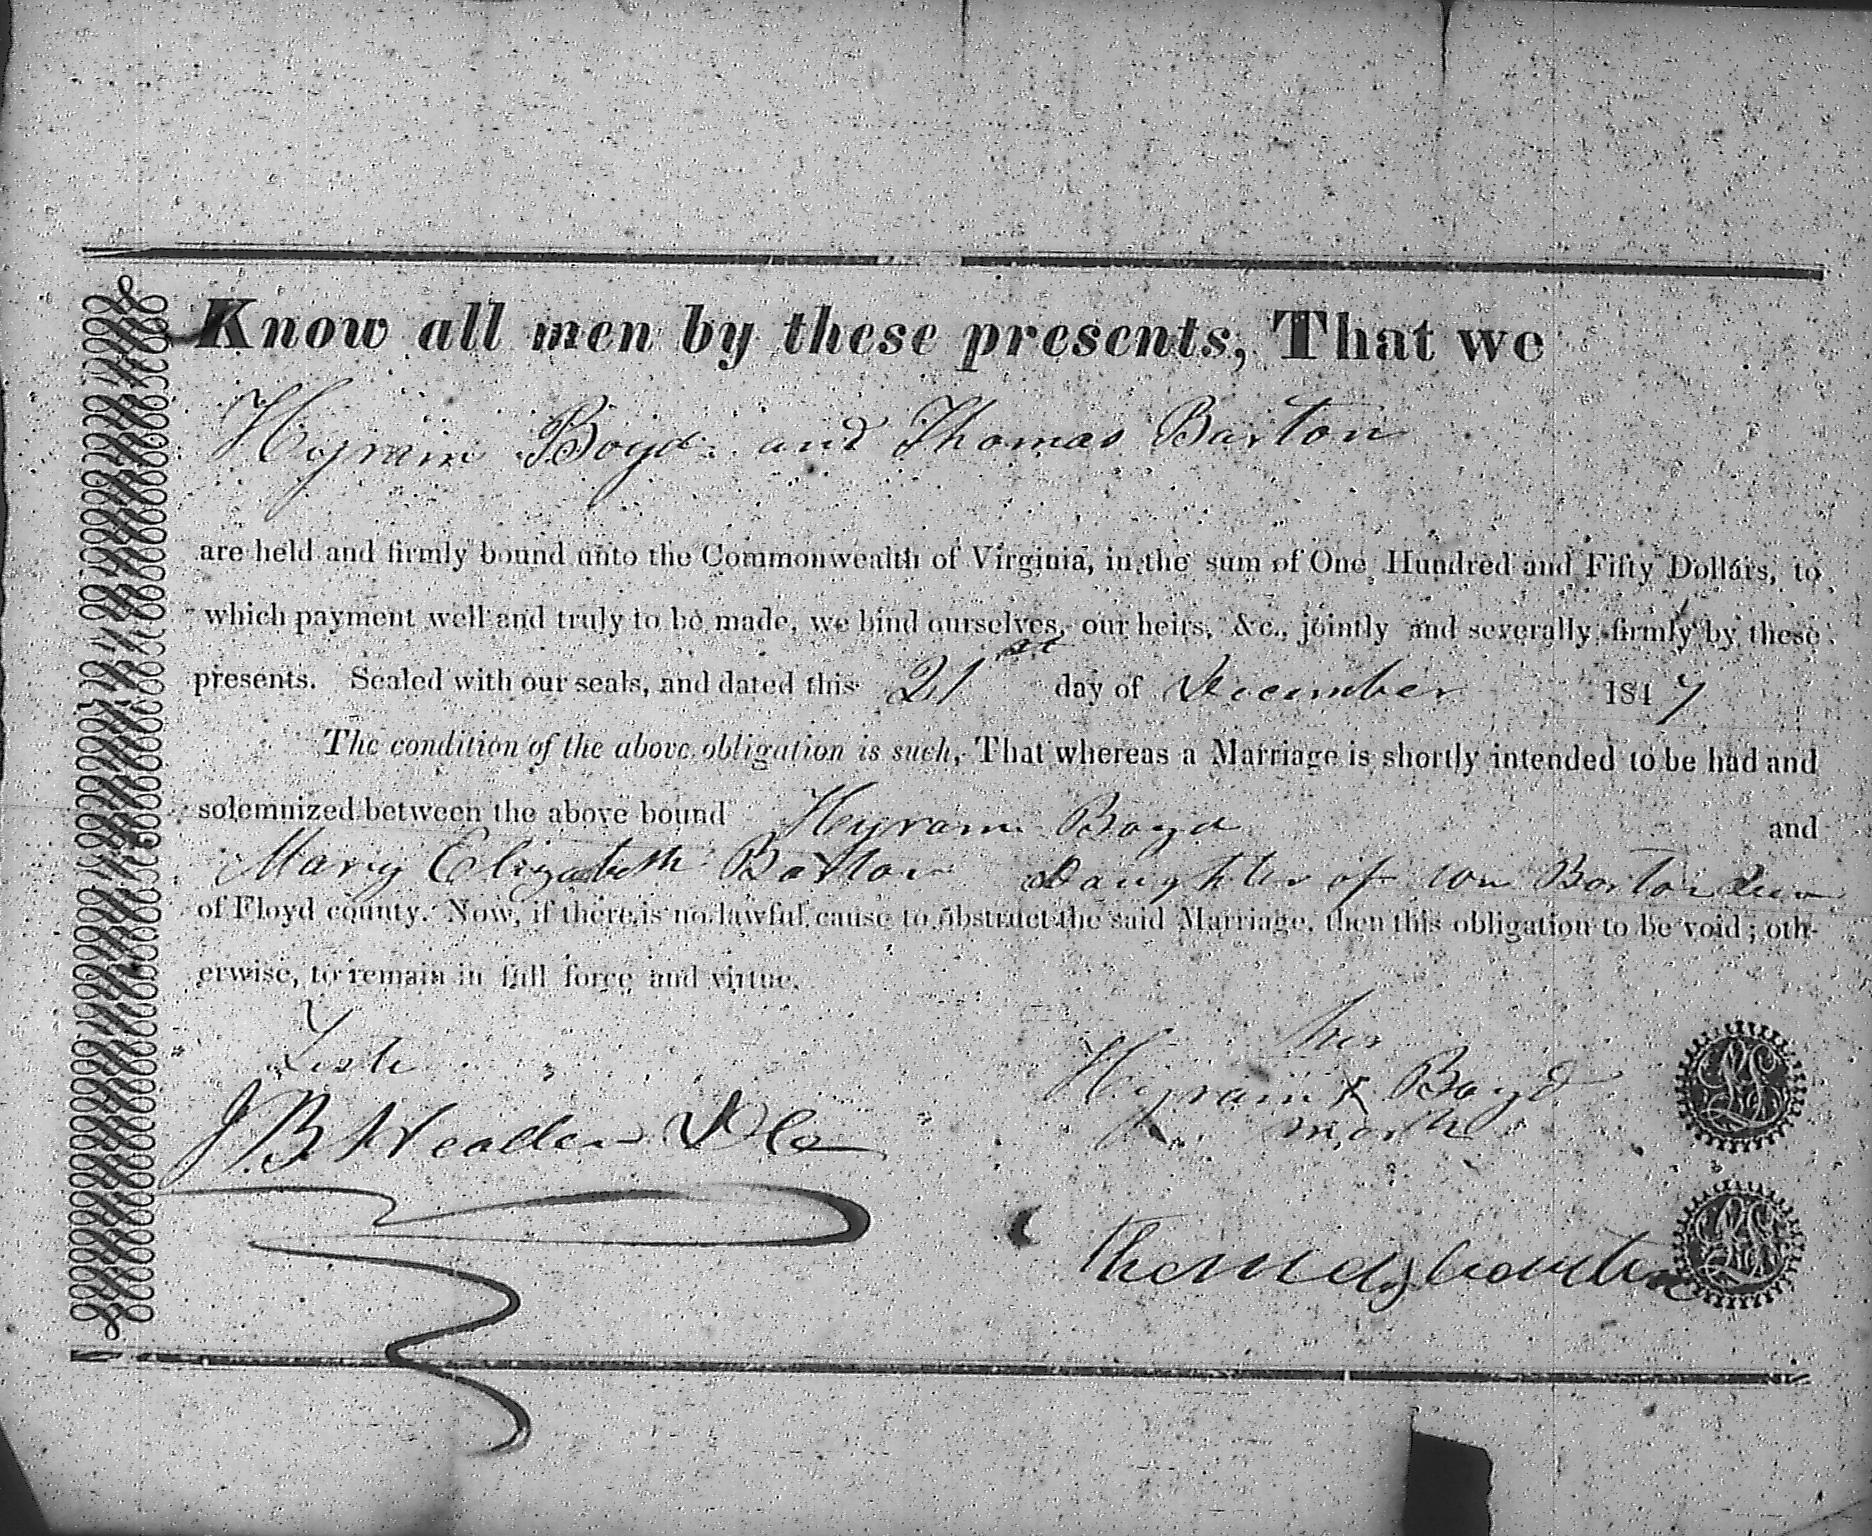 Know all men by these presents, That we
Hyram Boyd and Thomas Barton
are held and firmly bound unto the Commonwealth of Virginia, in the sum of One Hundred and Fifty Dollars, to
which payment well and truly to be made, we bind ourselves, our heirs, &c., jointly and severally firmly by these
presents. Sealed with our seals, and dated this 21st day of December 1847
The condition of the above obligation is such, That whereas a Marriage is shortly intended to be had and
solemnized between the above bound Hyram Boyd and
Mary Elizabeth Barton Daughter of Wm Barton
of Floyd county. Now, if there is no lawful cause to obstruct the said Marriage, then this obligation to be void; oth-
erwise, to remain in full force and virtue.
Teste
his
Hyram x Boyd
mark
J. B. Headen D Clk
Thomas barton